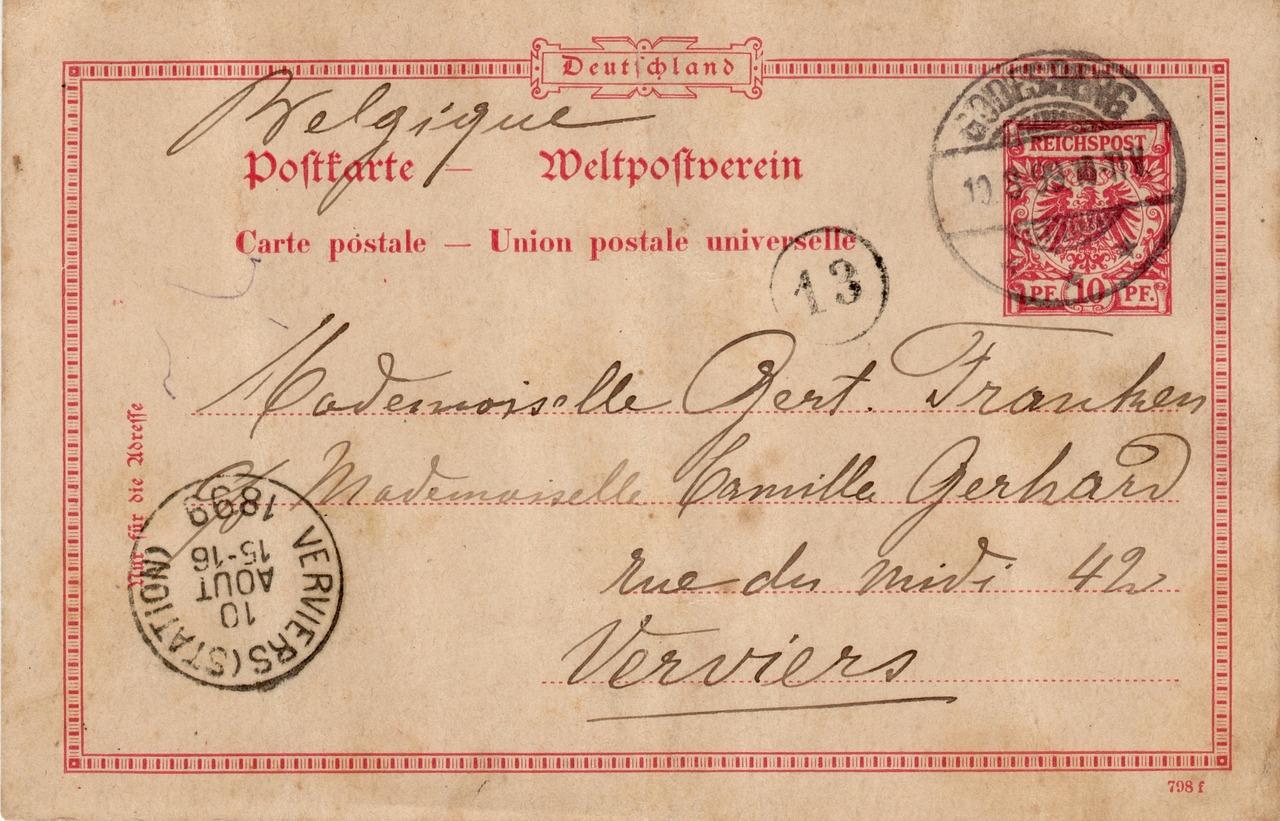 Deutschland
Belgique
Postkarte — Weltpostverein
Carte postale — Union postale universelle
GODESBERG
10. 8. 99.
REICHSPOST
PF. 10 PF.
13
Mademoiselle Gert. Franken
c/o Mademoiselle Camille Gerhard
rue du midi 42
Verviers
Nur für die Adresse
VERVIERS (STATION)
10
AOUT
15-16
1899
798 f